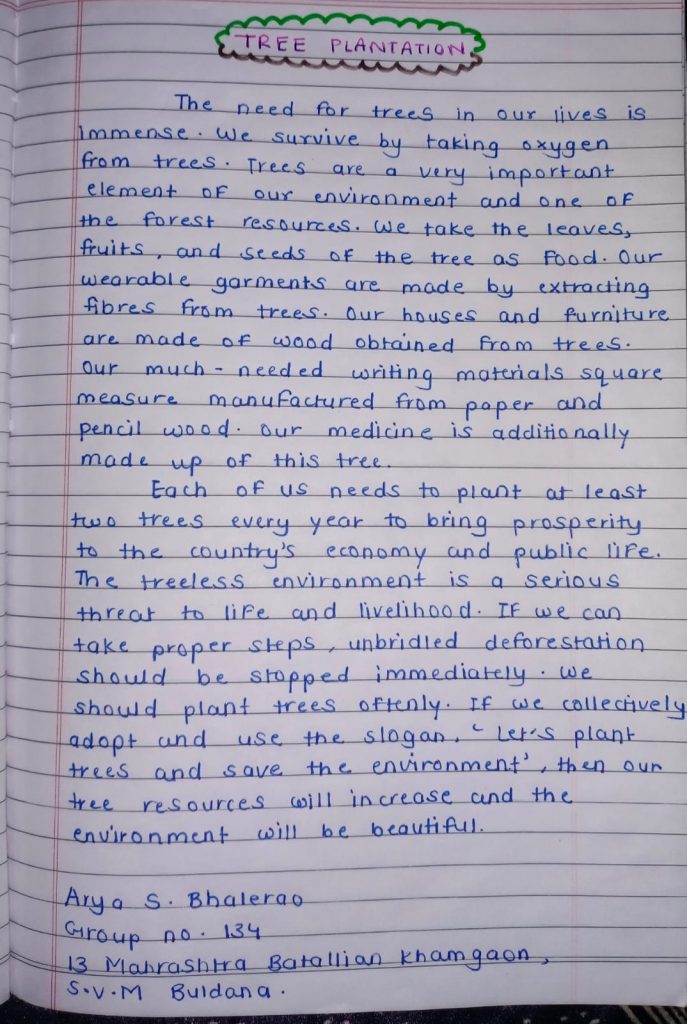 TREE PLANTATION
The need for trees in our lives is
immense. We survive by taking oxygen
from trees. Trees are a very important
element of our environment and one of
the forest resources. We take the leaves,
fruits, and seeds of the tree as food. Our
wearable garments are made by extracting
fibres from trees. Our houses and furniture
are made of wood obtained from trees.
Our much-needed writing materials square
measure manufactured from paper and
pencil wood. Our medicine is additionally
made up of this tree.
Each of us needs to plant at least
two trees every year to bring prosperity
to the country's economy and public life.
The treeless environment is a serious
threat to life and livelihood. If we can
take proper steps, unbridled deforestation
should be stopped immediately. We
should plant trees oftenly. If we collectively
adopt and use the slogan, 'Let's plant
trees and save the environment', then our
tree resources will increase and the
environment will be beautiful.
Arya S. Bhalerao
Group no. 134
13 Mahrashtra Batallian Khamgaon,
S.V.M Buldana.